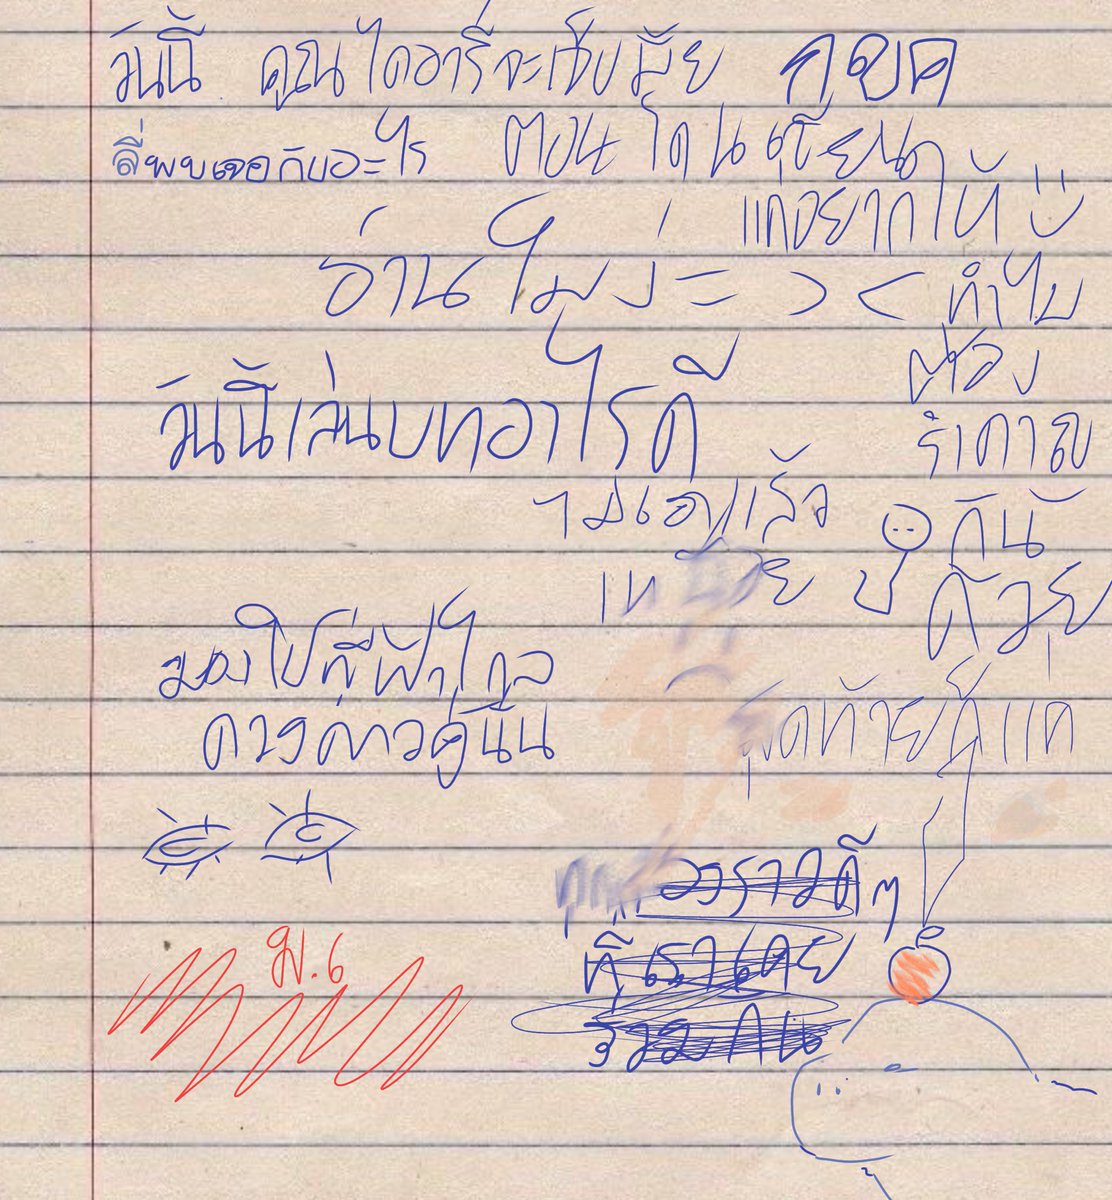 วันนี้ คุณไดอารี่จะเซ็บมั้ย กุขค
ลี่พบเจอกับอะไร ตอนโดนเขียน
แกอยากให้
อ่านไม่
ทำไม
ต้อง
วันนี้เล่นบทอาไรดี
รำคาญ
ไม่เอาแล้ว
กันั
เหนื่อย
ด้วย
มองไปที่ฟ้าไกล
ดวงดาวคู่นั้น
สุดท้ายก็แค่
เรื่องราวดีๆ
ที่เราเคย
ร่วมกัน
ม.6